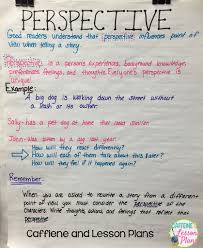 PERSPECTIVE
Good readers understand that perspective influences point of
view when telling a story.
Perspective is a persons experiences, background knowledge,
preferences, feelings, and thoughts. Everyone's perspective is
unique!
Example:
A big dog is walking down the street without
a leash or its owner.
Sally- has a pet dog at home that looks similar
John- Was bitten by a dog last year.
How will they react differently?
How will each of them talk about this later?
How will they feel if it happened again?
Remember:
When you are asked to rewrite a story from a different
point of view, you must consider the perspective of the
characters. Write thoughts, actions, and feelings that reflect that
perspective.
CAFFEINE
and
Lesson
Plans
Caffiene and Lesson Plans